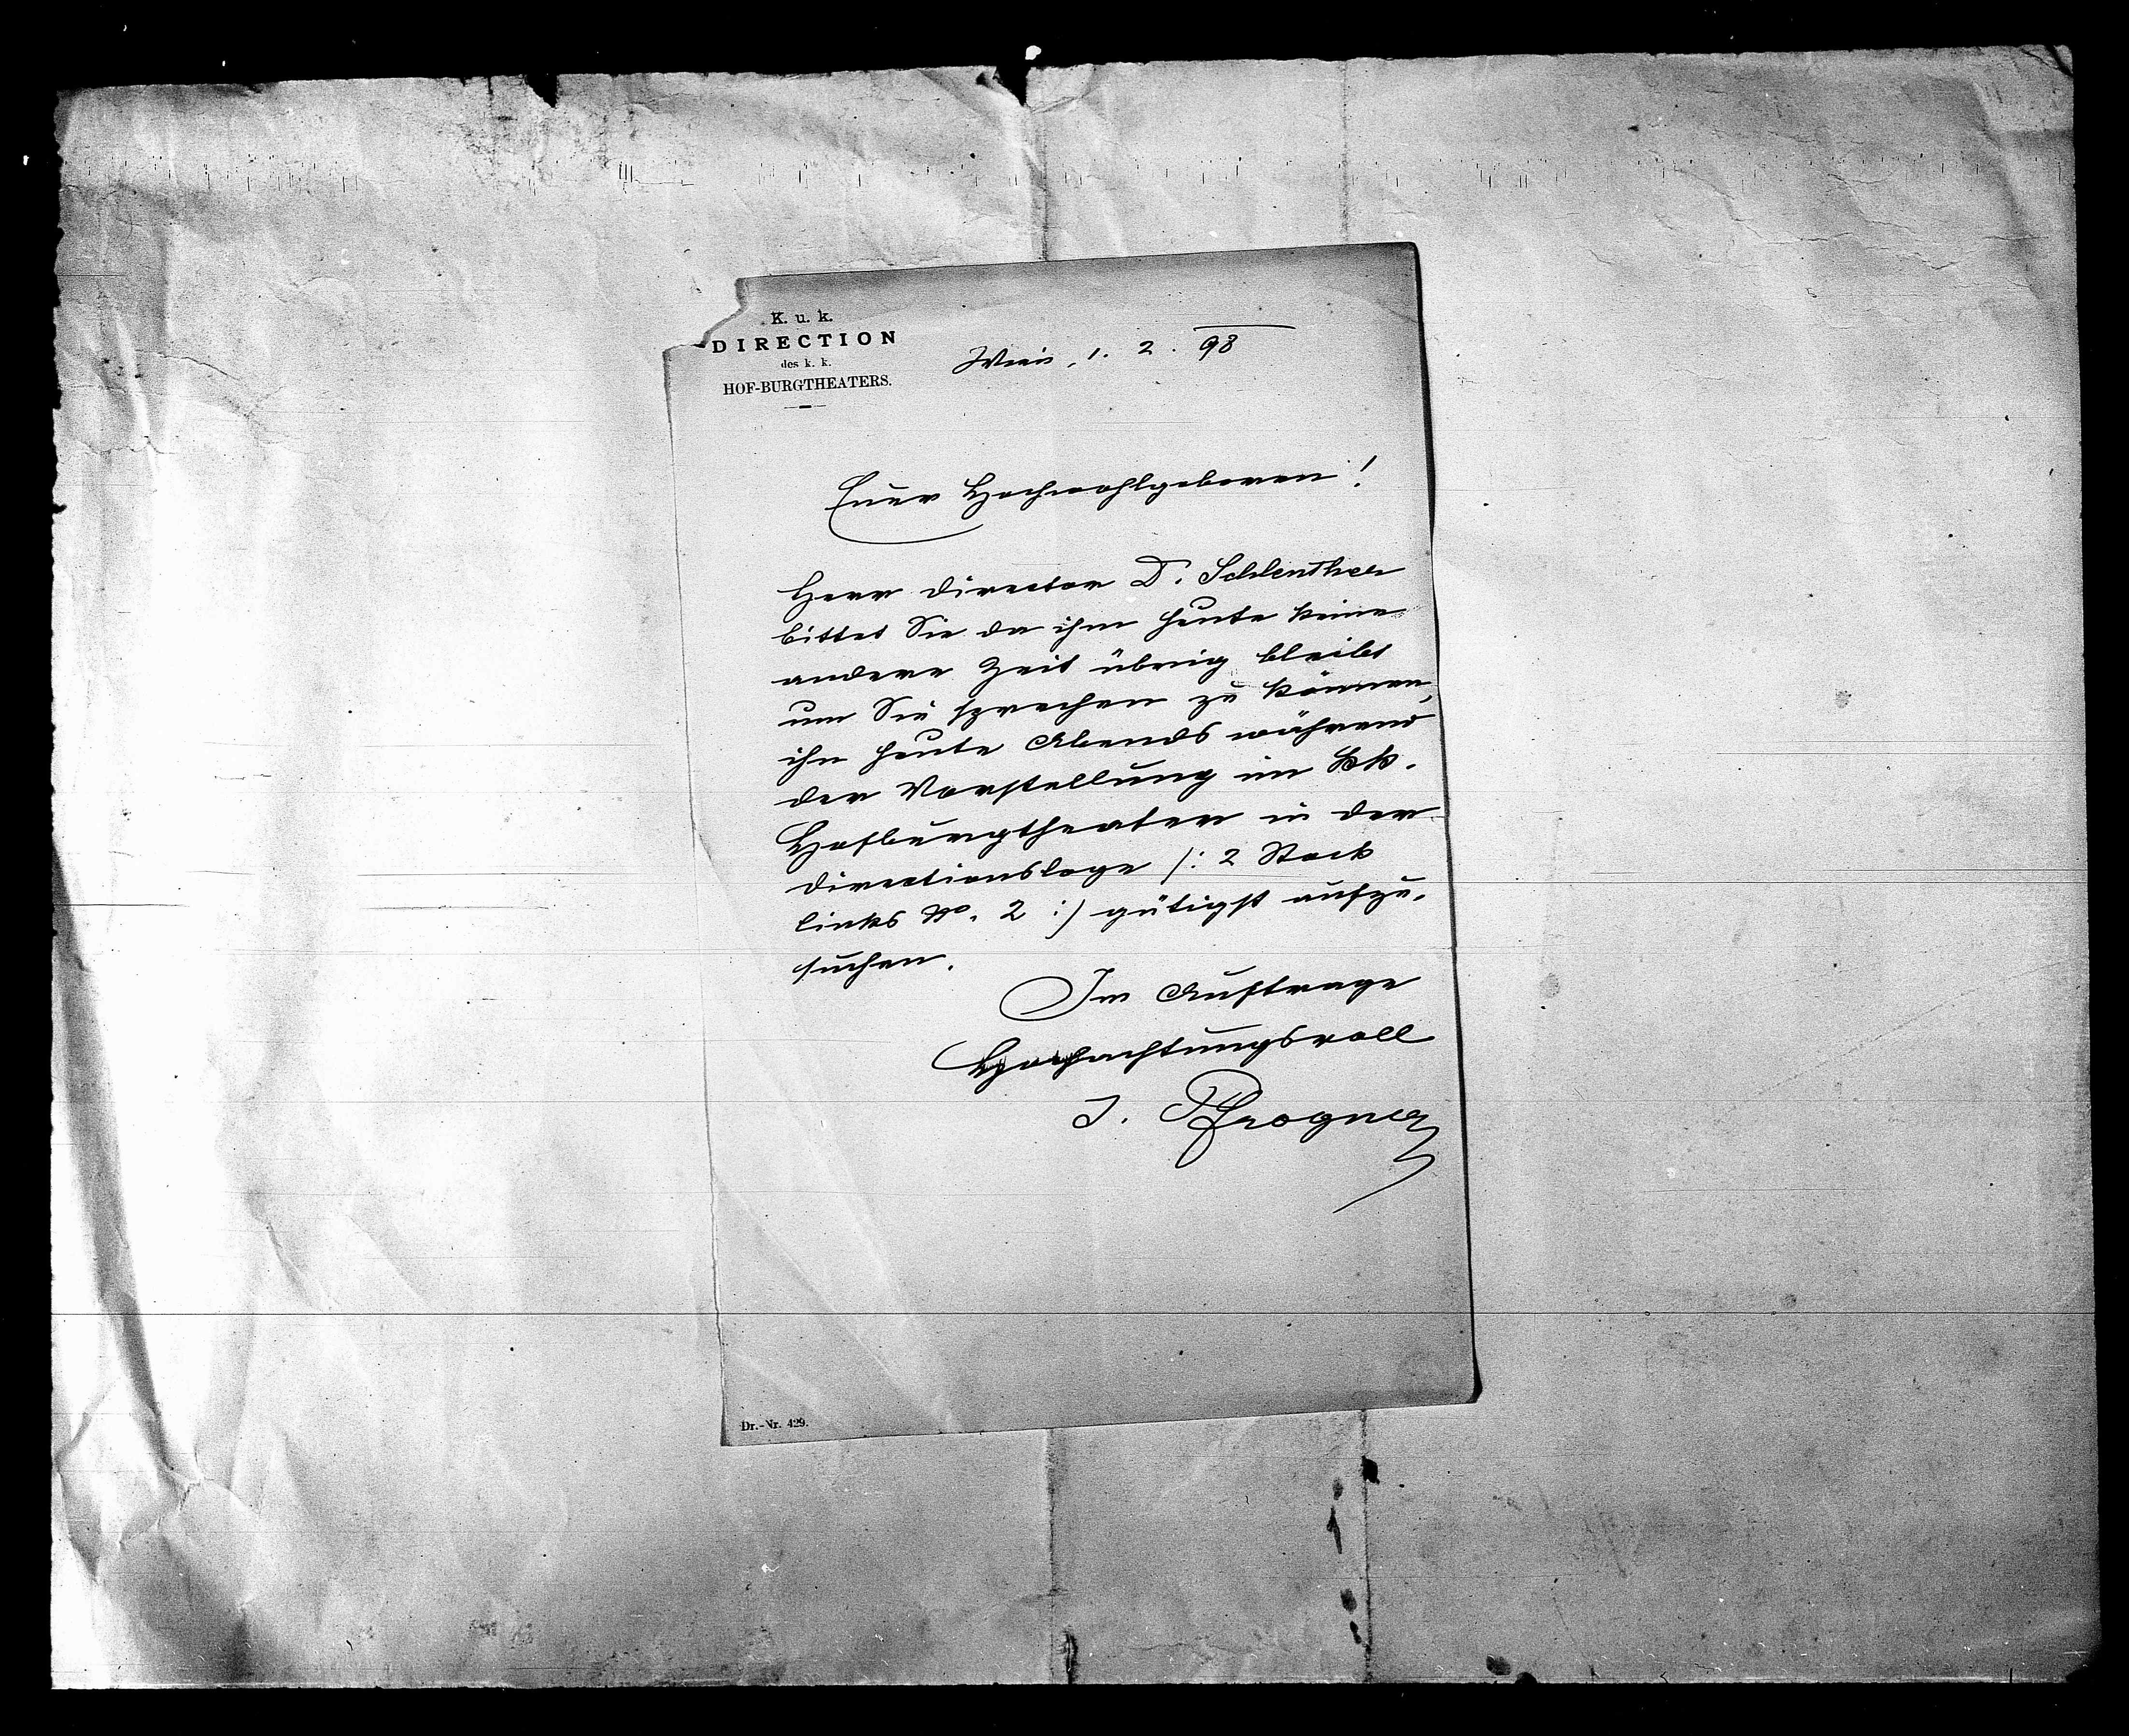 K. u. k.
DIRECTION
des k. k.
HOF-BURGTHEATERS.
Wien, 1. 2. 98
Euer Hochwohlgeboren!
Herr Director D. Schlenther
bittet Sie da ihm heute keine
andere Zeit übrig bleibt
um Sie sprechen zu können,
ihn heute Abends während
der Vorstellung im kk.
Hofburgtheater in der
Directionsloge /: 2 Stock
links No. 2 :/ gütigst aufzu-
suchen.
Im Auftrage
Hochachtungsvoll
J. Pfrogner
Dr.-Nr. 429.